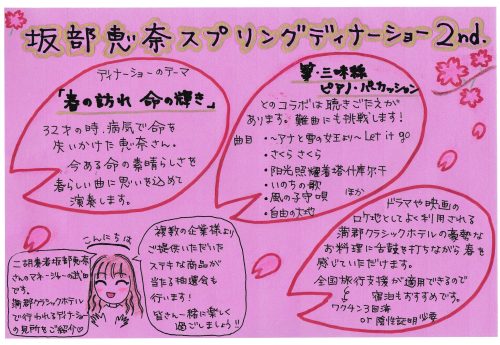 坂部恵奈スプリングディナーショー2nd.
ディナーショーのテーマ
「春の訪れ 命の輝き」
32才の時、病気で命を
失いかけた恵奈さん。
今ある命の素晴らしさを
春らしい曲に思いを込めて
演奏します。
箏・三味線
ピアノ・パーカッション
とのコラボは聴きごたえが
あります。難曲にも挑戦します!
曲目
・〜アナと雪の女王より〜 Let it go
・さくら さくら
・阳光照耀着塔什库尔干
・いのちの歌
・風の子守唄 ほか
・自由の大地
ドラマや映画の
ロケ地としてよく利用される
蒲郡クラシックホテルの豪勢な
お料理に舌鼓を打ちながら春を
感じていただけます。
全国旅行支援が適用できるので
宿泊もおすすめです。
ワクチン3回済
or 陰性証明必要
こんにちは
二胡奏者坂部恵奈
さんのマネージャーの
です。
蒲郡クラシックホテル
で行われるディナーショー
の見所をご紹介♡
複数の企業様より
ご提供いただいた
ステキな商品が
当たる抽選会も
行います!
皆さん一緒に楽しく
過ごしましょう!!